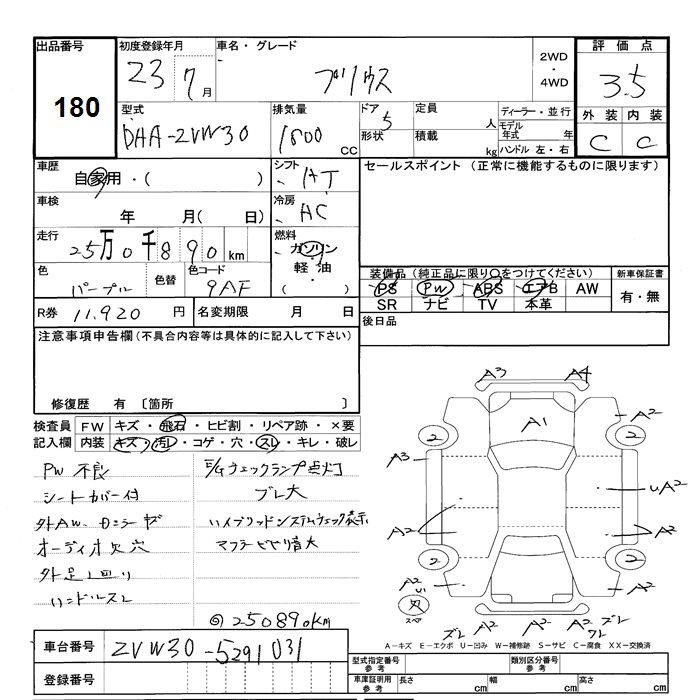 出品番号
180
初度登録年月
23 7月
車名・グレード
プリウス
2WD
・
4WD
評価点
3.5
外装 内装
C C
型式
DAA-ZVW30
排気量
1800 CC
ドア
5
形状
定員
人
積載
kg
ディーラー・並行
モデル年式 年
ハンドル 左・右
車歴
自家用・( )
シフト
AT
車検
年 月( 日)
冷房
AC
走行
25万0千890km
燃料
ガソリン
・
軽油
( )
色
パープル
色替
色コード
9AF
R券 11,920円
名変期限 月 日
セールスポイント(正常に機能するものに限ります)
装備品(純正品に限り○をつけてください)
PS PW ABS エアB AW
SR ナビ TV 本革
新車保証書
有・無
後日品
注意事項申告欄(不具合内容等は具体的に記入して下さい)
修復歴 有 〔箇所 〕
検査員 FW キズ・飛石・ヒビ割・リペア跡・×要
記入欄 内装 キズ・汚レ・コゲ・穴・スレ・キレ・破レ
PW 不良
シートカバー付
外AW、
オーディオ欠 穴
外足回り
ハンドルスレ
E/Gチェックランプ点灯
ブレ大
ハイブリッドシステムチェック表示
マフラー 音大
◎250890km
A3 A4
A1
A2
A3
UA2
A2
A2
A2
U1
A2
2
2
2
2
ズレ A2 A2 A2 ズレ
ワレ
A-キズ E-エクボ U-凹み W-補修跡 S-サビ C-腐食 XX-交換済
車台番号 ZVW30-5291031
登録番号
型式指定番号
参考
類別区分番号
参考
車庫証明用
参考
長さ cm
幅 cm
高さ cm